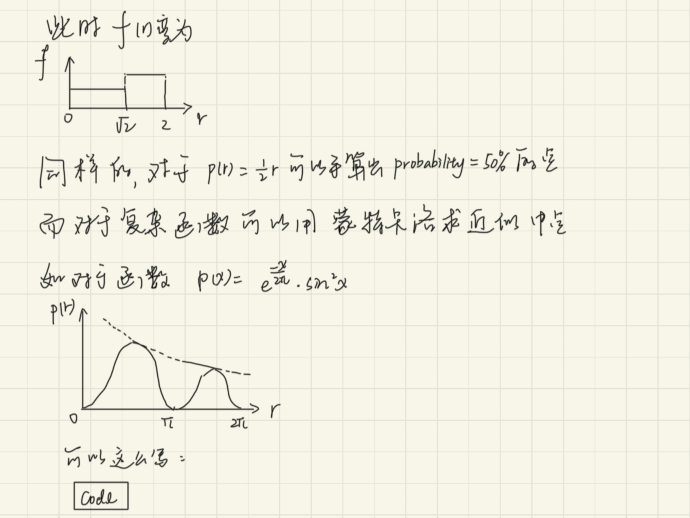 此时 f(r)变为
f
0 √2 2 r
同样的, 对于 p(r)=½r 可以手算出 probability=50% 的点
而对于复杂函数可以用蒙特卡洛求近似中点
如对于函数 p(x)= e^(-x/2π) · sin²x
p(r)
0 π 2π r
可以这么写:
Code